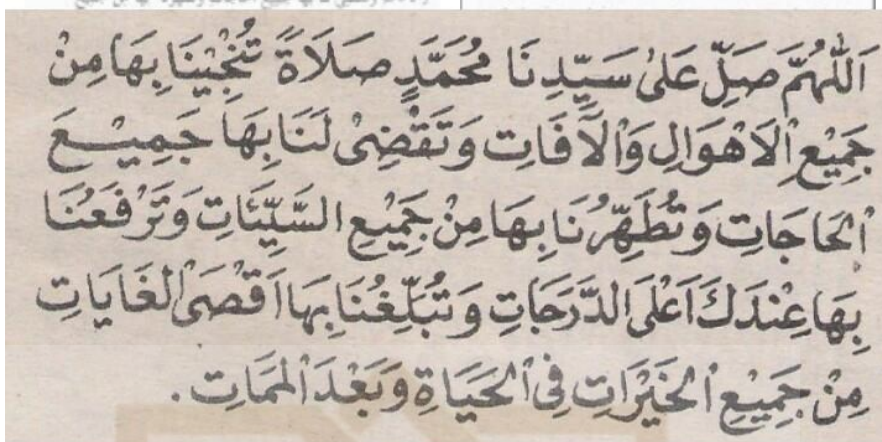 اَللّٰهُمَّ صَلِّ عَلٰى سَيِّدِنَا مُحَمَّدٍ صَلَاةً تُنْجِيْنَا بِهَا مِنْ
جَمِيْعِ اْلاَهْوَالِ وَاْلآفَاتِ وَتَقْضِىْ لَنَا بِهَا جَمِيْعَ
اْلحَاجَاتِ وَتُطَهِّرُنَا بِهَا مِنْ جَمِيْعِ السَّيِّئَاتِ وَتَرْفَعُنَا
بِهَا عِنْدَكَ اَعْلَى الدَّرَجَاتِ وَتُبَلِّغُنَا بِهَا اَقْصَى اْلغَايَاتِ
مِنْ جَمِيْعِ اْلخَيْرَاتِ فِى اْلحَيَاةِ وَبَعْدَ اْلمَمَاتِ.